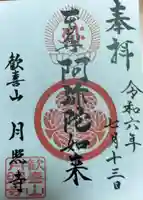 奉拝
令和六年
七月十三日
本尊
阿弥陀如来
歓喜山
月照寺